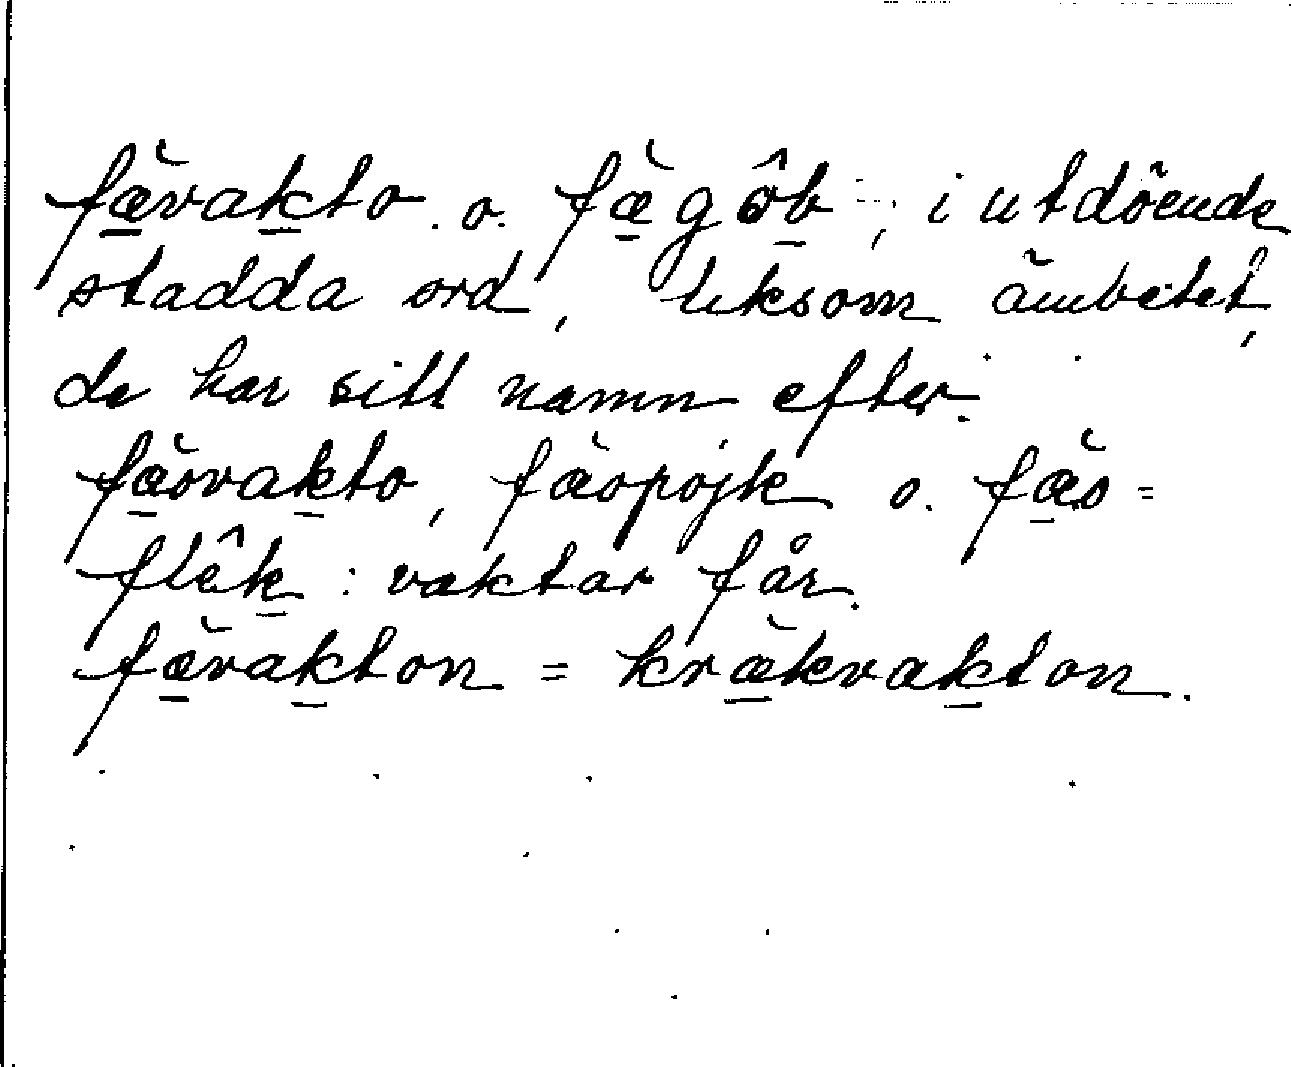 fæ̀vakto o. fæ̀gôb, i utdöende
stadda ord, liksom ämbetet,
de har sitt namn efter.
fæ̀svakto, fæ̀spojk o. fæ̀s=
flêk : vaktar får.
fæ̀vakton = kræ̀kvakton.